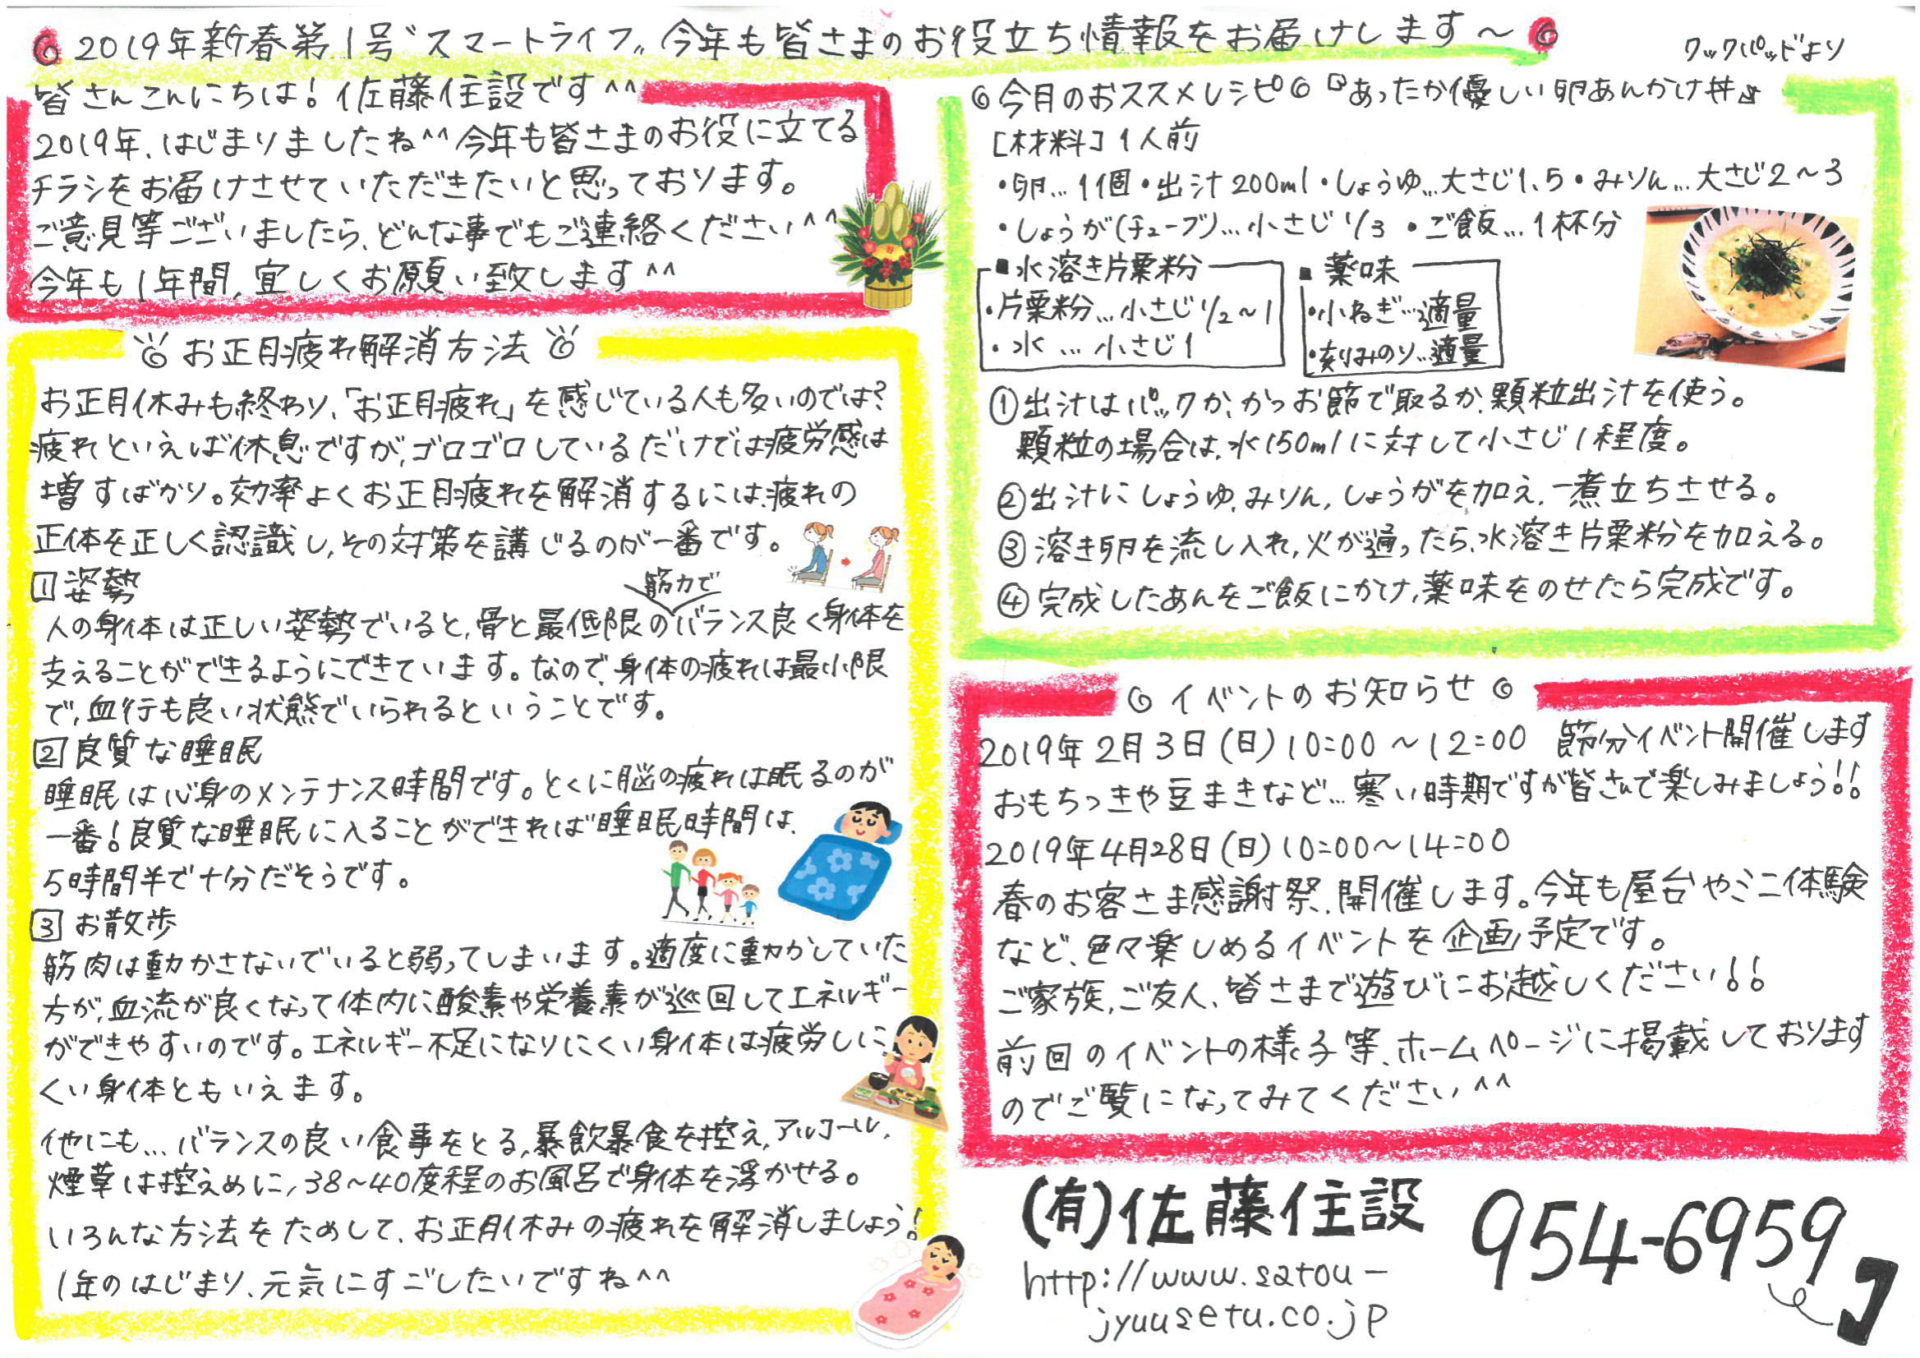 2019年新春第1号"スマートライフ"今年も皆さまのお役立ち情報をお届けします〜
皆さんこんにちは！佐藤住設です^^
2019年、はじまりましたね^^今年も皆さまのお役に立てる
チラシをお届けさせていただきたいと思っております。
ご意見等ございましたら、どんな事でもご連絡ください^^
今年も1年間、宜しくお願い致します^^
お正月疲れ解消方法
お正月休みも終わり、「お正月疲れ」を感じている人も多いのでは？
疲れといえば休息ですが、ゴロゴロしているだけでは疲労感は
増すばかり。効率よくお正月疲れを解消するには、疲れの
正体を正しく認識し、その対策を講じるのが一番です。
1 姿勢
筋力で
人の身体は正しい姿勢でいると、骨と最低限のバランス良く身体を
支えることができるようにできています。なので、身体の疲れは最小限
で、血行も良い状態でいられるということです。
2 良質な睡眠
睡眠は心身のメンテナンス時間です。とくに脳の疲れは眠るのが
一番！良質な睡眠に入ることができれば睡眠時間は、
5時間半で十分だそうです。
3 お散歩
筋肉は動かさないでいると弱ってしまいます。適度に動かしていた
方が、血流が良くなって体内に酸素や栄養素が巡回してエネルギー
ができやすいのです。エネルギー不足になりにくい身体は疲労しに
くい身体ともいえます。
他にも…バランスの良い食事をとる、暴飲暴食を控え、アルコール、
煙草は控えめに、38〜40度程のお風呂で身体を浮かせる。
いろんな方法をためして、お正月休みの疲れを解消しましょう！
1年のはじまり、元気にすごしたいですね^^
クックパッドより
今月のおススメレシピ『あったか優しい卵あんかけ丼』
[材料] 1人前
・卵…1個・出汁200ml・しょうゆ…大さじ1.5・みりん…大さじ2〜3
・しょうが(チューブ)…小さじ1/3 ・ご飯…1杯分
■水溶き片栗粉
・片栗粉…小さじ1/2〜1
・水…小さじ1
■薬味
・小ねぎ…適量
・刻みのり…適量
①出汁はパックか、かつお節で取るか、顆粒出汁を使う。
顆粒の場合は、水150mlに対して小さじ1程度。
②出汁にしょうゆ、みりん、しょうがを加え、一煮立ちさせる。
③溶き卵を流し入れ、火が通ったら、水溶き片栗粉を加える。
④完成したあんをご飯にかけ、薬味をのせたら完成です。
イベントのお知らせ
2019年2月3日(日)10:00〜12:00 節分イベント開催します
おもちつきや豆まきなど…寒い時期ですが皆さんで楽しみましょう!!
2019年4月28日(日)10:00〜14:00
春のお客さま感謝祭、開催します。今年も屋台やミニ体験
など、色々楽しめるイベントを企画予定です。
ご家族、ご友人、皆さまで遊びにお越しください!!
前回のイベントの様子等、ホームページに掲載しております
のでご覧になってみてください^^
(有)佐藤住設
954-6959
http://www.satou-
jyuusetu.co.jp